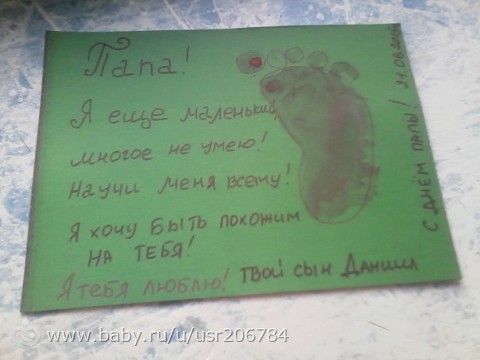 Папа!
Я еще маленький,
многое не умею!
Научи меня всему!
Я хочу быть похожим
на тебя!
Я тебя люблю! твой сын Даниил
С днём папы!
www.baby.ru/u/usr206784